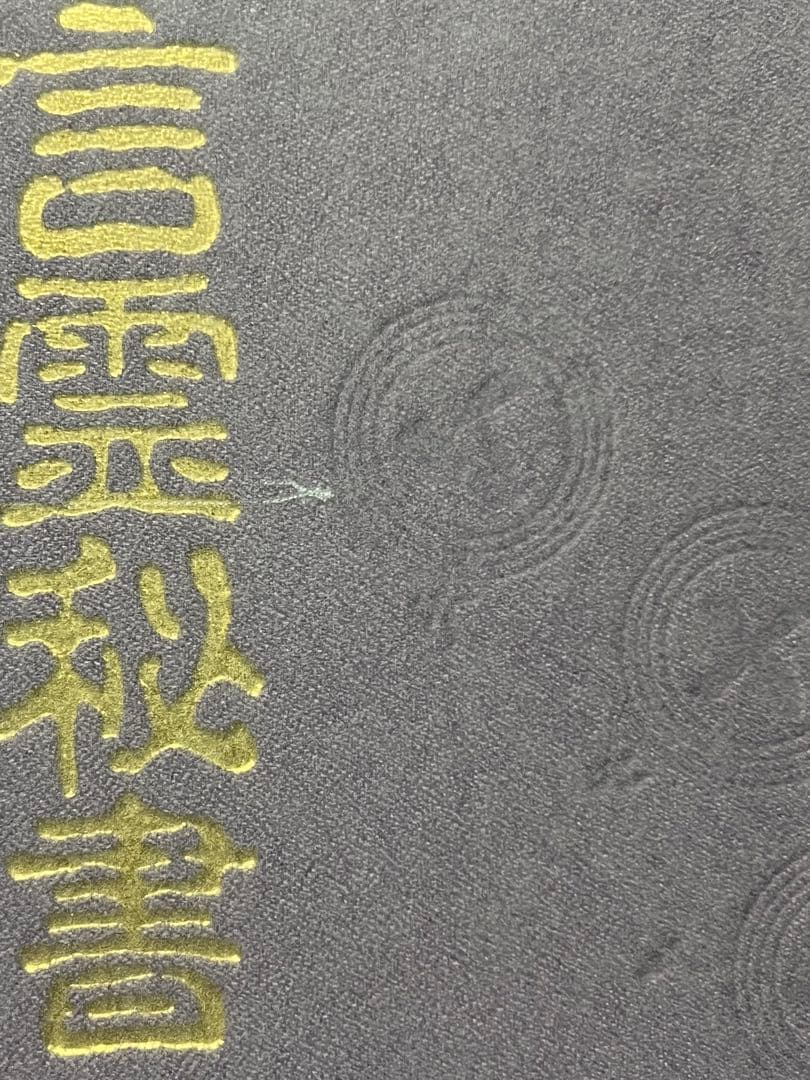 言霊秘書